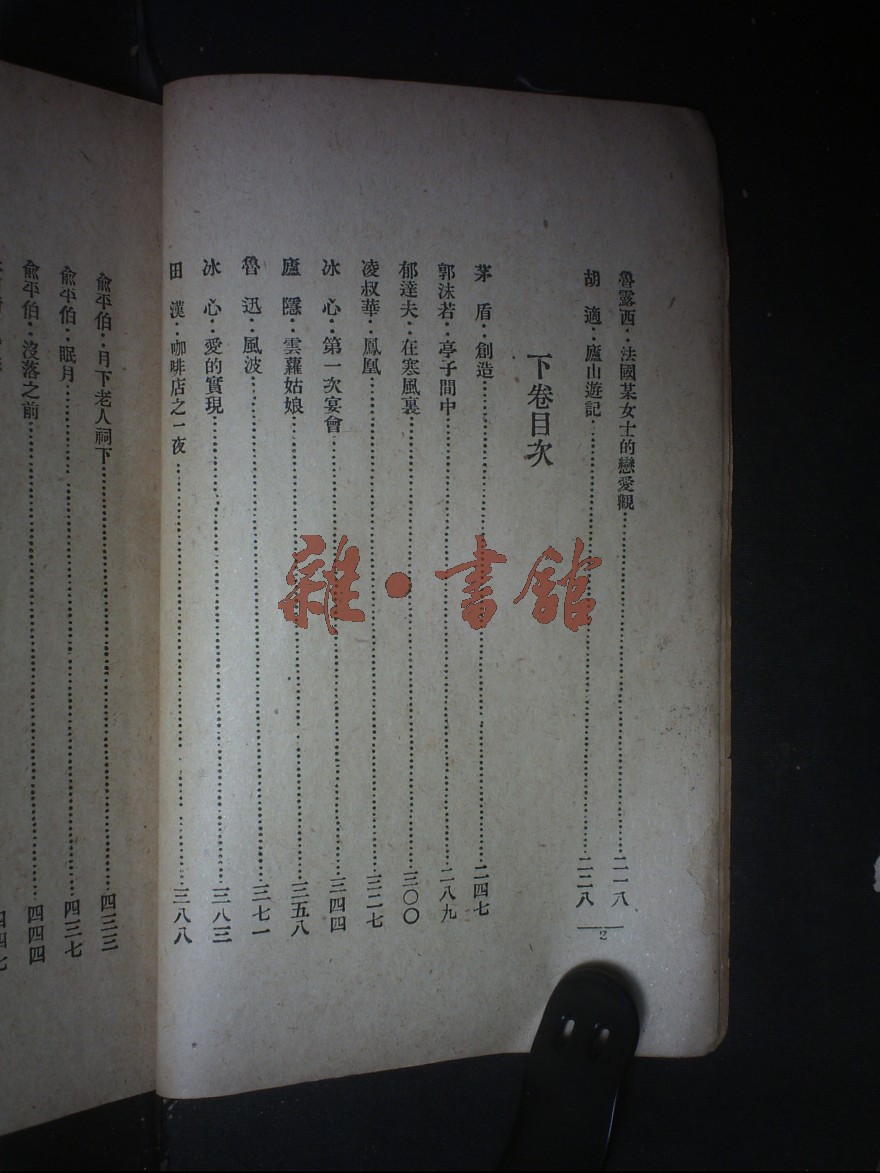 魯露西：法國某女士的戀愛觀……二一八
胡　適：廬山遊記……二二八
下卷目次
茅　盾：創造……二四七
郭沫若：亭子間中……二八九
郁達夫：在寒風裏……三〇〇
凌叔華：鳳凰……三二七
冰　心：第一次宴會……三四四
廬　隱：雲蘿姑娘……三五八
魯　迅：風波……三七一
冰　心：愛的實現……三八三
田　漢：咖啡店之一夜……三八八
2
俞平伯：月下老人祠下……四三三
俞平伯：眠月……四三七
俞平伯：沒落之前……四四四
四四七
雜·書館